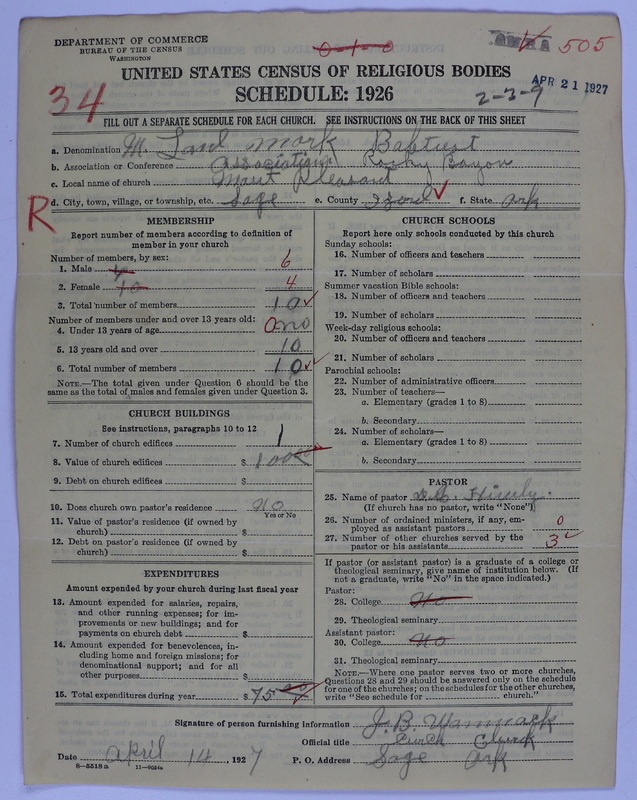 DEPARTMENT OF COMMERCE
BUREAU OF THE CENSUS
WASHINGTON
0-1-0
505
APR 21 1927
UNITED STATES CENSUS OF RELIGIOUS BODIES
SCHEDULE: 1926
34
2-3-9
FILL OUT A SEPARATE SCHEDULE FOR EACH CHURCH. SEE INSTRUCTIONS ON THE BACK OF THIS SHEET
a. Denomination M. Land mark Babtist
b. Association or Conference Association Rocky Bayou
c. Local name of church Mount Pleasant
R
d. City, town, village, or township, etc. Sage e. County Izard f. State Ark
MEMBERSHIP
Report number of members according to definition of
member in your church
Number of members, by sex:
1. Male 6
2. Female 10 4
3. Total number of members 10
Number of members under and over 13 years old:
4. Under 13 years of age 0 no
5. 13 years old and over 10
6. Total number of members 10
NOTE.—The total given under Question 6 should be the
same as the total of males and females given under Question 3.
CHURCH BUILDINGS
See instructions, paragraphs 10 to 12
7. Number of church edifices 1
8. Value of church edifices $ 100
9. Debt on church edifices $
10. Does church own pastor's residence No
Yes or No
11. Value of pastor's residence (if owned by
church) $
12. Debt on pastor's residence (if owned by
church) $
EXPENDITURES
Amount expended by your church during last fiscal year
13. Amount expended for salaries, repairs,
and other running expenses; for im-
provements or new buildings; and for
payments on church debt $
14. Amount expended for benevolences, in-
cluding home and foreign missions; for
denominational support; and for all
other purposes $
15. Total expenditures during year $ 75
CHURCH SCHOOLS
Report here only schools conducted by this church
Sunday schools:
16. Number of officers and teachers
17. Number of scholars
Summer vacation Bible schools:
18. Number of officers and teachers
19. Number of scholars
Week-day religious schools:
20. Number of officers and teachers
21. Number of scholars
Parochial schools:
22. Number of administrative officers
23. Number of teachers—
a. Elementary (grades 1 to 8)
b. Secondary
24. Number of scholars—
a. Elementary (grades 1 to 8)
b. Secondary
PASTOR
25. Name of pastor
(If church has no pastor, write "None")
26. Number of ordained ministers, if any, em-
ployed as assistant pastors 0
27. Number of other churches served by the
pastor or his assistants 3
If pastor (or assistant pastor) is a graduate of a college or
theological seminary, give name of institution below. (If
not a graduate, write "No" in the space indicated.)
Pastor:
28. College No
29. Theological seminary
Assistant pastor:
30. College No
31. Theological seminary
NOTE.—Where one pastor serves two or more churches,
Questions 28 and 29 should be answered only on the schedule
for one of the churches; on the schedules for the other churches,
write "See schedule for church."
Signature of person furnishing information J. B. Wammack
Official title Curch Clurck
Date April 14, 1927 P. O. Address Sage Ark
8-5518a 11-9024a